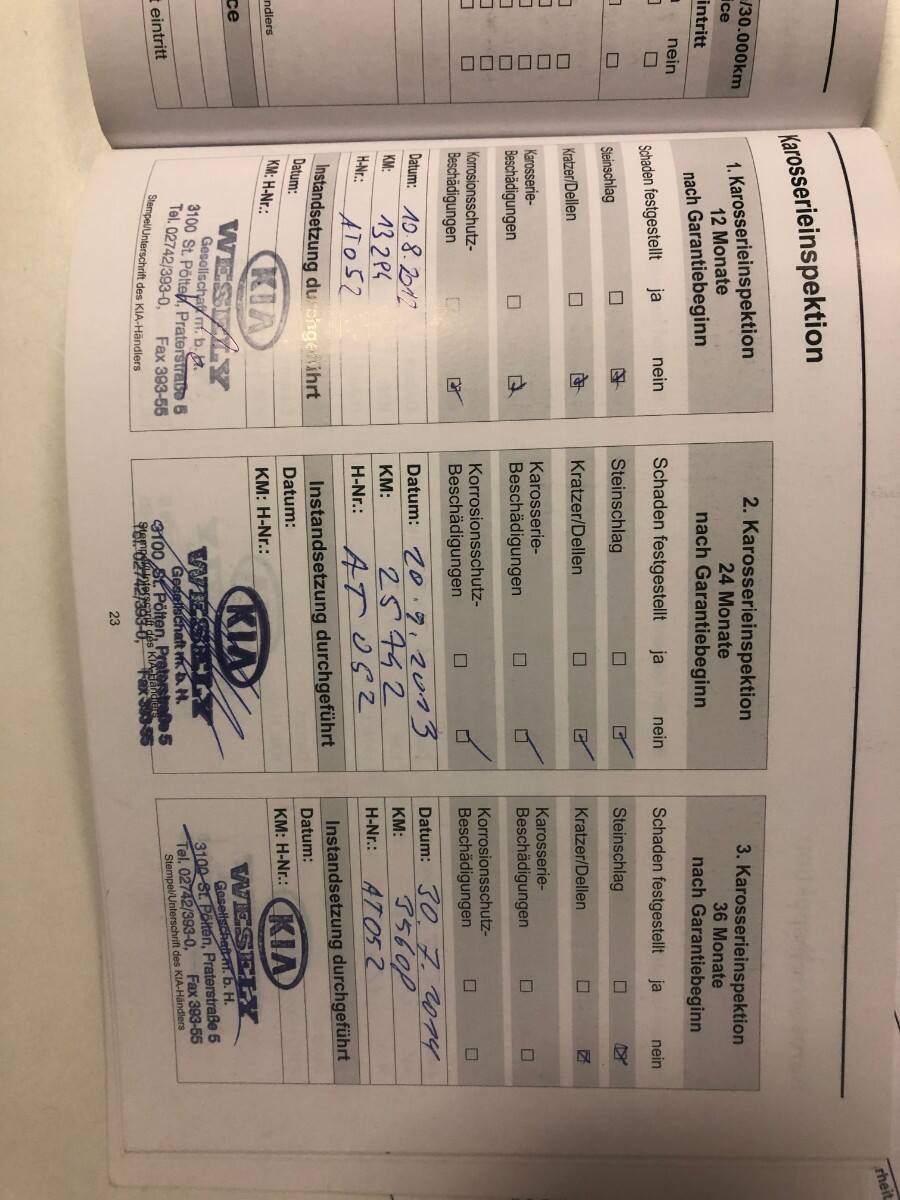 /30.000km
ice
intritt
nein
ce
ndlers
t eintritt
Karosserieinspektion
1. Karosserieinspektion
12 Monate
nach Garantiebeginn
Schaden festgestellt ja nein
Steinschlag
Kratzer/Dellen
Karosserie-
Beschädigungen
Korrosionsschutz-
Beschädigungen
Datum: 10.8.2012
KM: 13294
H-Nr.: AT052
Instandsetzung durchgeführt
Datum:
KM: H-Nr.:
KIA
WESELY
Gesellschaft m. b. H.
3100 St. Pölten, Praterstraße 5
Tel. 02742/393-0, Fax 393-55
Stempel/Unterschrift des KIA-Händlers
2. Karosserieinspektion
24 Monate
nach Garantiebeginn
Schaden festgestellt ja nein
Steinschlag
Kratzer/Dellen
Karosserie-
Beschädigungen
Korrosionsschutz-
Beschädigungen
Datum: 20.9.2013
KM: 25742
H-Nr.: AT052
Instandsetzung durchgeführt
Datum:
KM: H-Nr.:
KIA
WESELY
Gesellschaft m. b. H.
3100 St. Pölten, Praterstraße 5
Tel. 02742/393-0, Fax 393-55
Stempel/Unterschrift des KIA-Händlers
3. Karosserieinspektion
36 Monate
nach Garantiebeginn
Schaden festgestellt ja nein
Steinschlag
Kratzer/Dellen
Karosserie-
Beschädigungen
Korrosionsschutz-
Beschädigungen
Datum: 30.7.2014
KM: 39600
H-Nr.: AT052
Instandsetzung durchgeführt
Datum:
KM: H-Nr.:
KIA
WESELY
Gesellschaft m. b. H.
3100 St. Pölten, Praterstraße 5
Tel. 02742/393-0, Fax 393-55
Stempel/Unterschrift des KIA-Händlers
23
rheit